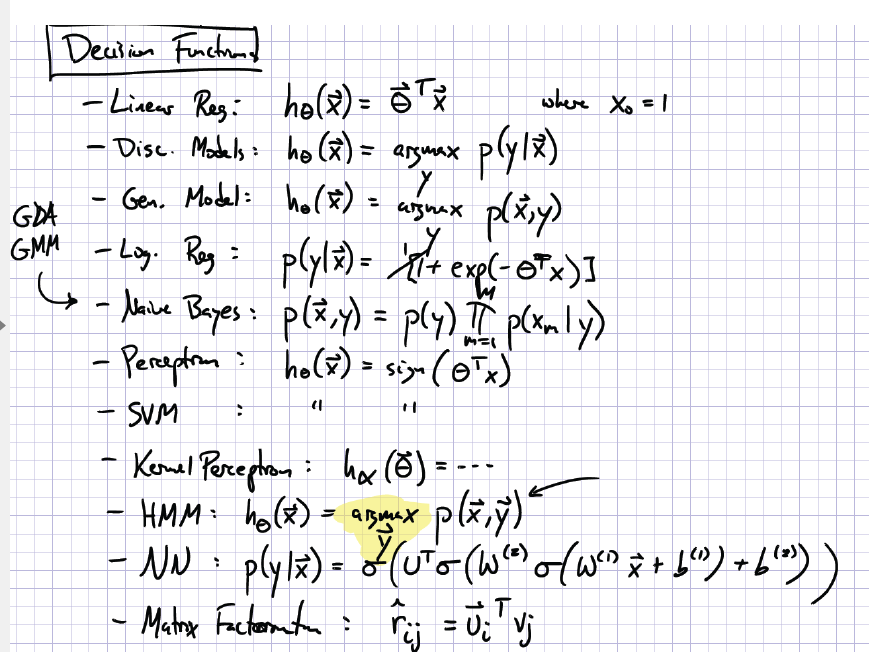 Decision Functions
- Linear Reg: hθ(x⃗) = θ⃗ᵀx⃗ where x₀ = 1
- Disc. Models: hθ(x⃗) = argmax_y p(y|x⃗)
- Gen. Model: hθ(x⃗) = argmax_y p(x⃗,y)
GDA
GMM
- Log. Reg: p(y|x⃗) = 1/[1 + exp(-θᵀx)]
- Naive Bayes: p(x⃗,y) = p(y) ∏_{m=1}^{M} p(x_m|y)
- Perceptron: hθ(x⃗) = sign(θᵀx)
- SVM : " "
- Kernel Perceptron: hα(θ⃗) = ---
- HMM: hθ(x⃗) = argmax_y⃗ p(x⃗,y⃗)
- NN: p(y|x⃗) = σ(Uᵀσ(W⁽²⁾σ(W⁽¹⁾x⃗ + b⁽¹⁾) + b⁽²⁾))
- Matrix Factorization: r̂ᵢⱼ = u⃗ᵢᵀvⱼ